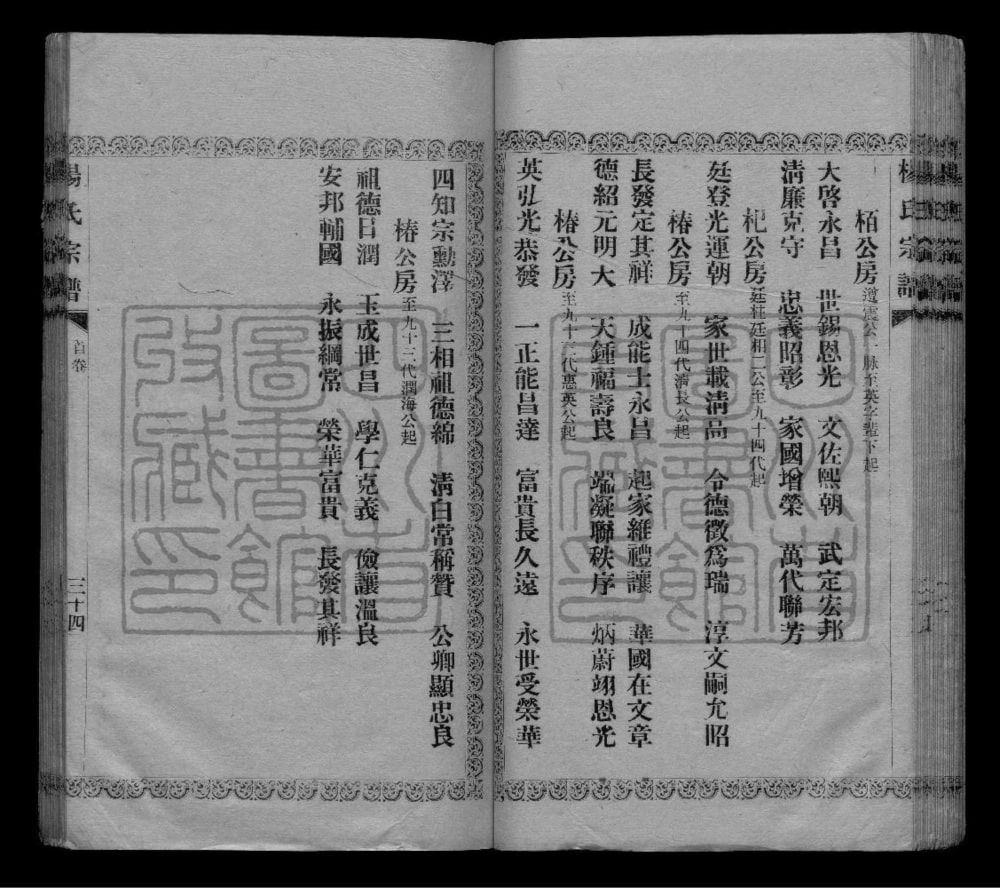 楊氏宗譜
栢公房遵震公一脉至英字輩下起
大啓永昌　世錫恩光　文佐熙朝　武定宏邦
淸廉克守　忠義昭彰　家國增榮　萬代聯芳
杞公房廷桂廷相二公至九十四代起
廷登光運朝　家世載淸高　令德徵爲瑞　淳文嗣允昭
椿公房至九十四代濟長公起
長發定其祥　成能士永昌　起家維禮讓　華國在文章
德紹元明大　天鍾福壽良　端凝聯秩序　炳蔚翊恩光
椿公房至九十二代惠英公起
英弘光恭發　一正能昌達　富貴長久遠　永世受榮華
四知宗勳澤　三相祖德綿　淸白常稱贊　公卿顯忠良
椿公房至九十二代潤海公起
祖德日潤　玉成世昌　學仁克義　儉讓溫良
安邦輔國　永振綱常　榮華富貴　長發其祥
楊氏宗譜
首卷
三十四
圖書館
收藏印